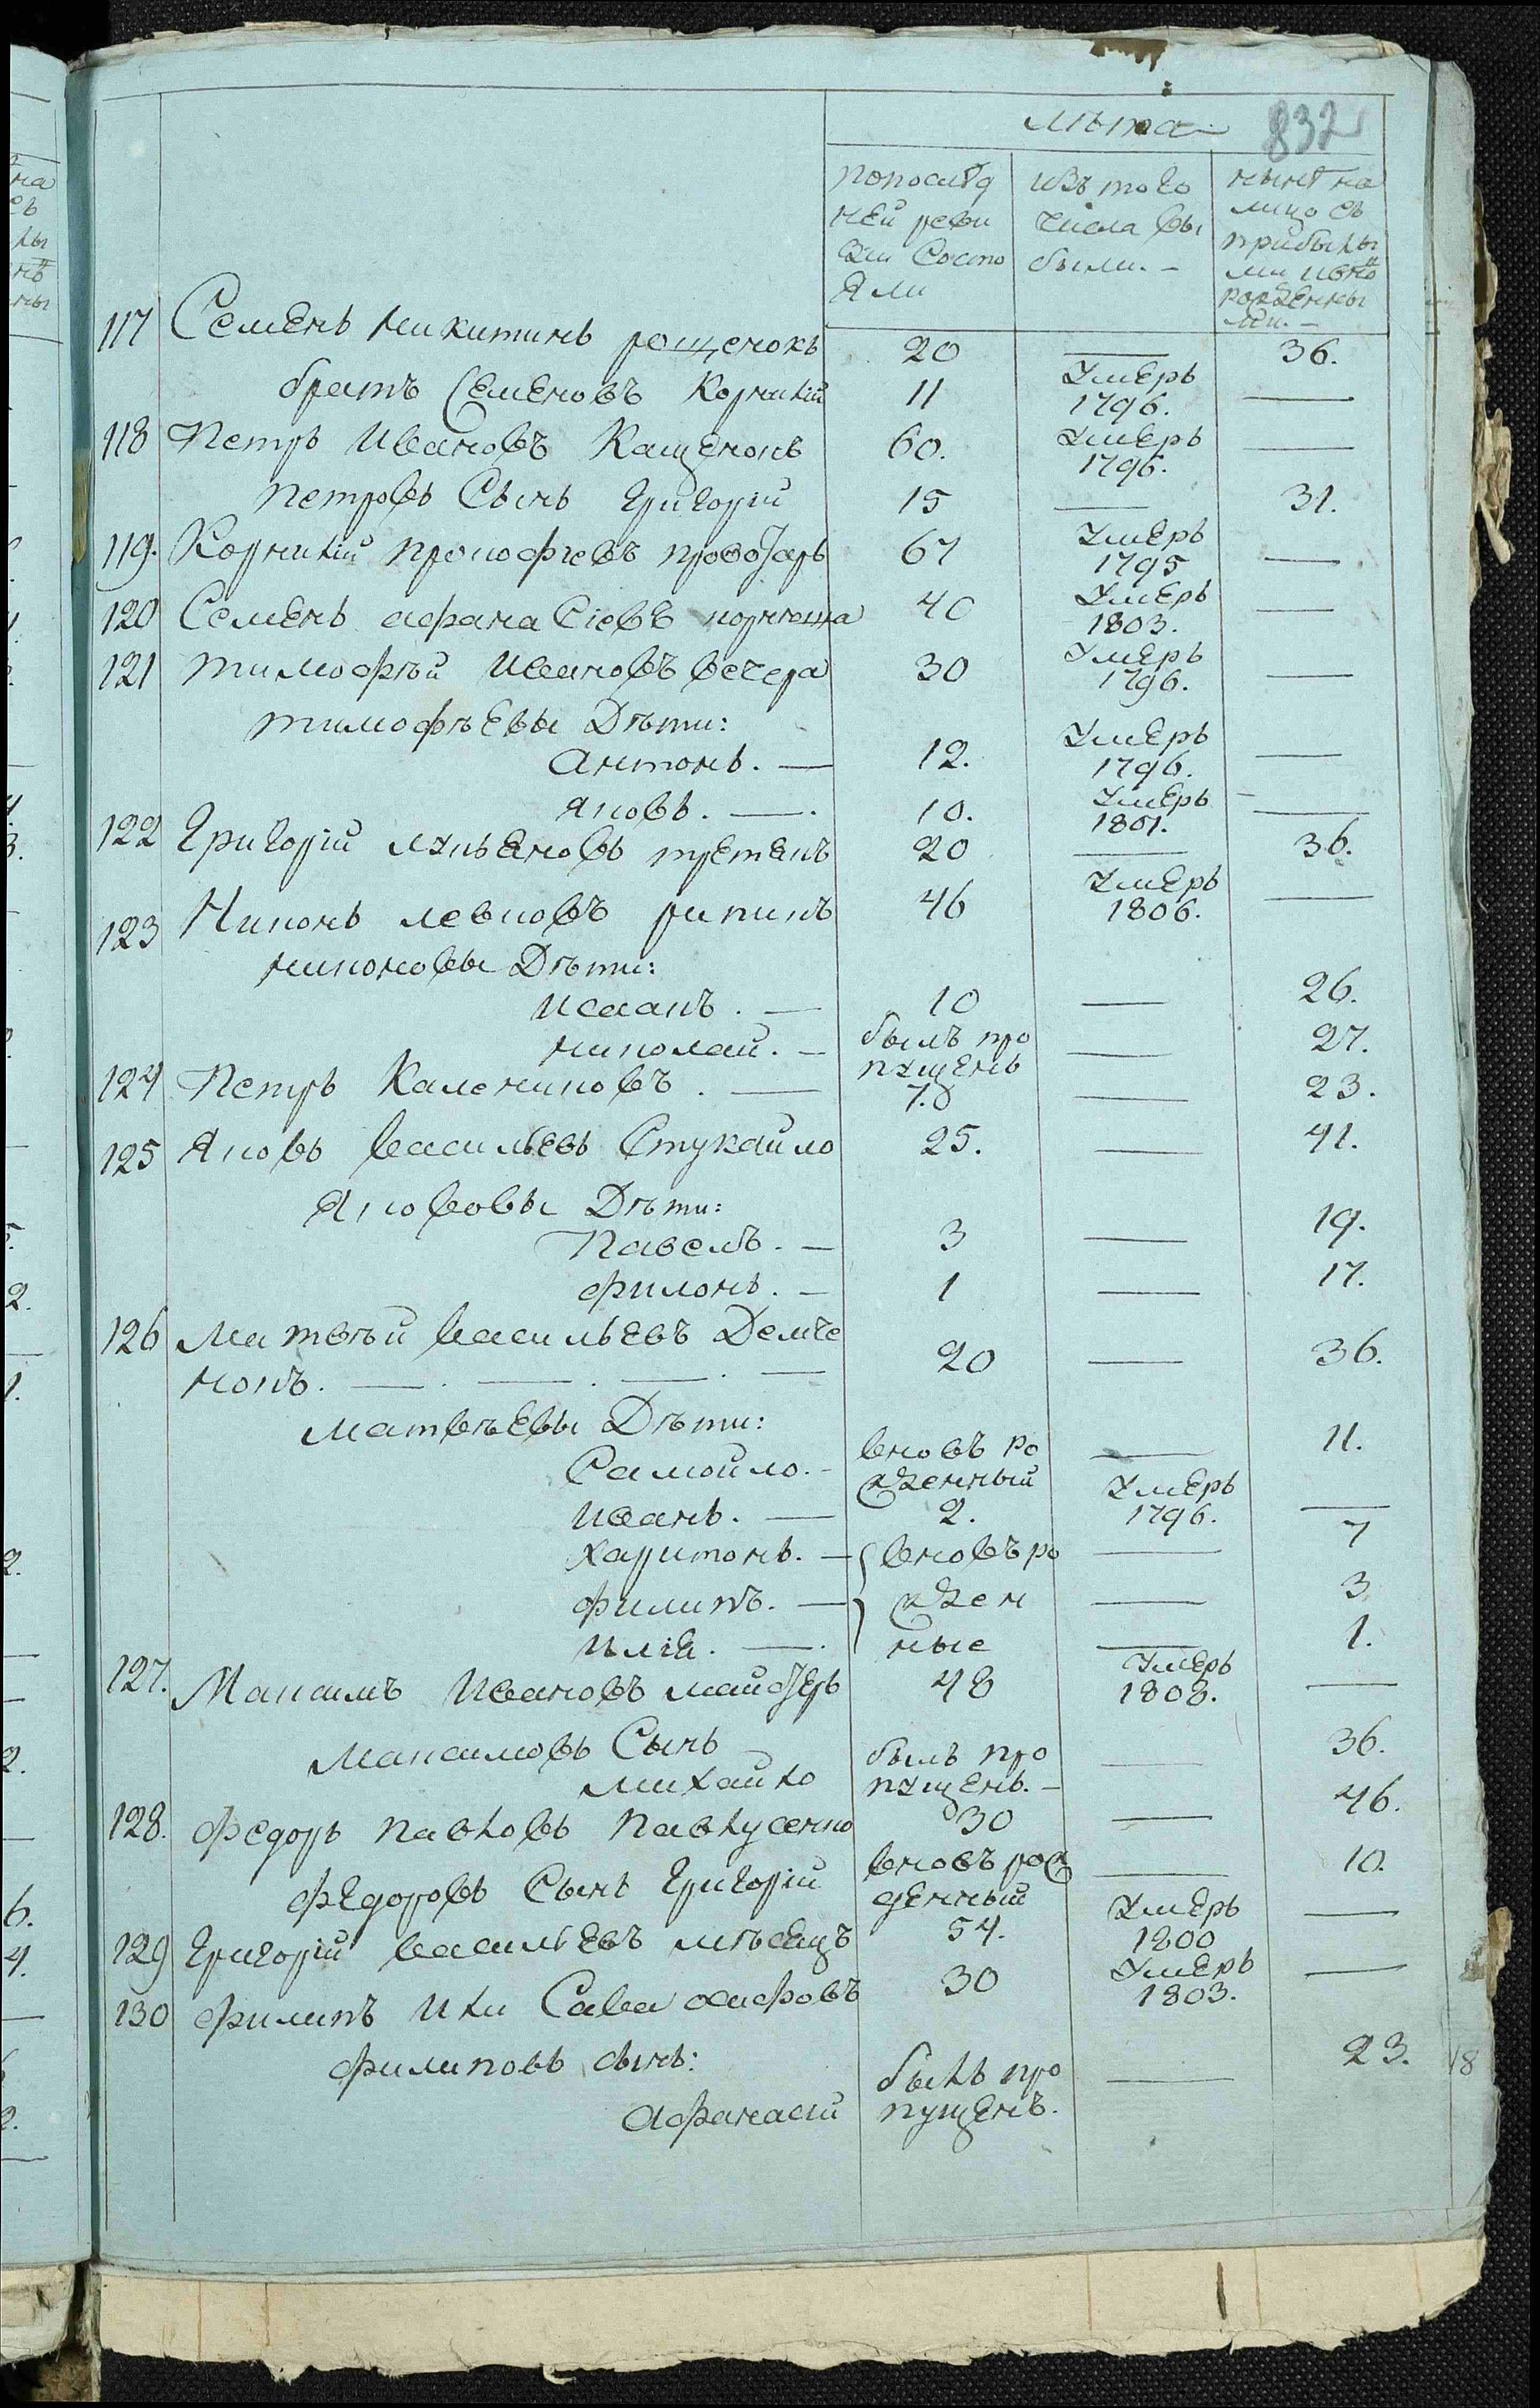 лѣта
832
попослѣд
ней реви
зіи Состо
яли
изъ того
числа вы
были. –
нынѣ на
лицо съ
прибылы
ми ивно
рожденны
ми. –
117 Семенъ никитинъ рощенокъ 20 — 36.
братъ Семеновъ Корнѣй 11 Умеръ 1796. —
118 Петръ Ивановъ Кащенокъ 60. Умеръ 1796. —
Петровъ Сынъ Григорій 15 — 31.
119. Корнѣй прокофіевъ 67 Умеръ 1795 —
120 Семенъ афанасіевъ 40 Умеръ 1803. —
121 тимофѣй Ивановъ вечера 30 Умеръ 1796. —
тимофѣевы Дѣти:
Антонъ. — 12. Умеръ 1796. —
яковъ. — 10. Умеръ 1801. —
122 Григорій лукьяновъ третякъ 20 — 36.
123 Никонъ левковъ репикъ 46 Умеръ 1806. —
никоновы Дѣти:
Исаакъ. — 10 — 26.
николай. — былъ про
пущенъ — 27.
124 Петръ Калениковъ. — 7.д — 23.
125 Яковъ васильевъ Стукайло 25. — 41.
Яковов​ы Дѣти:
Павелъ. — 3 — 19.
филонъ. — 1 — 17.
126 Матвѣй васильевъ Демче
нокъ. — . — . — . — 20 — 36.
матвѣевы Дѣти:
Самойло. – вновь ро
жденный — 11.
Иванъ. — 2. Умеръ 1796. —
харитонъ. — вновь ро — 7
филипъ. — жден — 3
илія. — ные — 1.
127. Максимъ Ивановъ 48 Умеръ 1808. —
Максимовъ Сынъ
михайло былъ про
пущенъ. – — 36.
128. федоръ павловъ павлусенко 30 — 46.
федоровъ Сынъ Григорій вновь рож
денный — 10.
129 Григорій васильевъ мѣсяцъ 54. Умеръ 1800 —
130 филипъ Или Сава 30 Умеръ 1803. —
филиповъ сынъ:
афанасій былъ про
пущенъ. — 23.
18